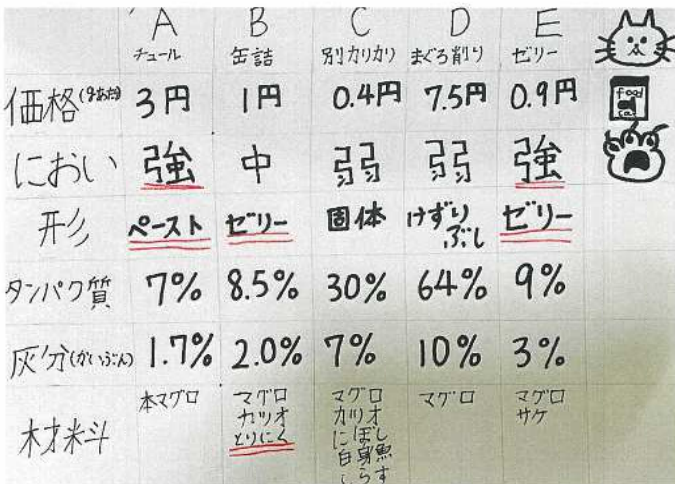 A B C D E
チュール 缶詰 別カリカリ まぐろ削り ゼリー
価格(gあたり) 3円 1円 0.4円 7.5円 0.9円
food
cat
におい 強 中 弱 弱 強
形 ペースト ゼリー 固体 けずりぶし ゼリー
タンパク質 7% 8.5% 30% 64% 9%
灰分(かいぶん) 1.7% 2.0% 7% 10% 3%
材料 本マグロ マグロ カツオ とりにく マグロ カツオ にぼし 白身魚 しらす マグロ マグロ サケ